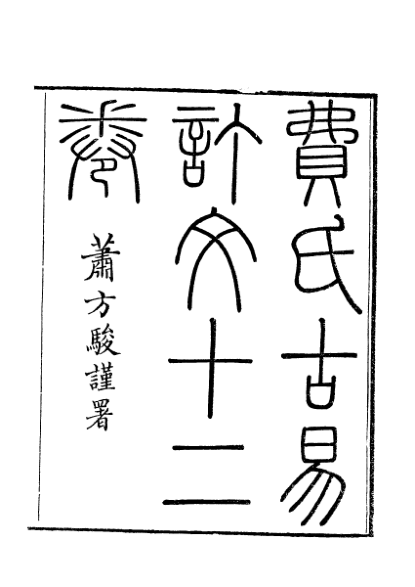 費氏古易
訂文十二
卷
蕭方駿謹署